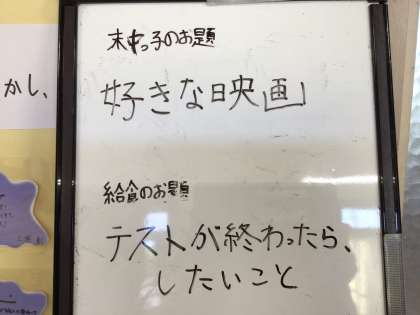 末中っ子のお題
好きな映画
給食のお題
テストが終わったら、
したいこと
かし、